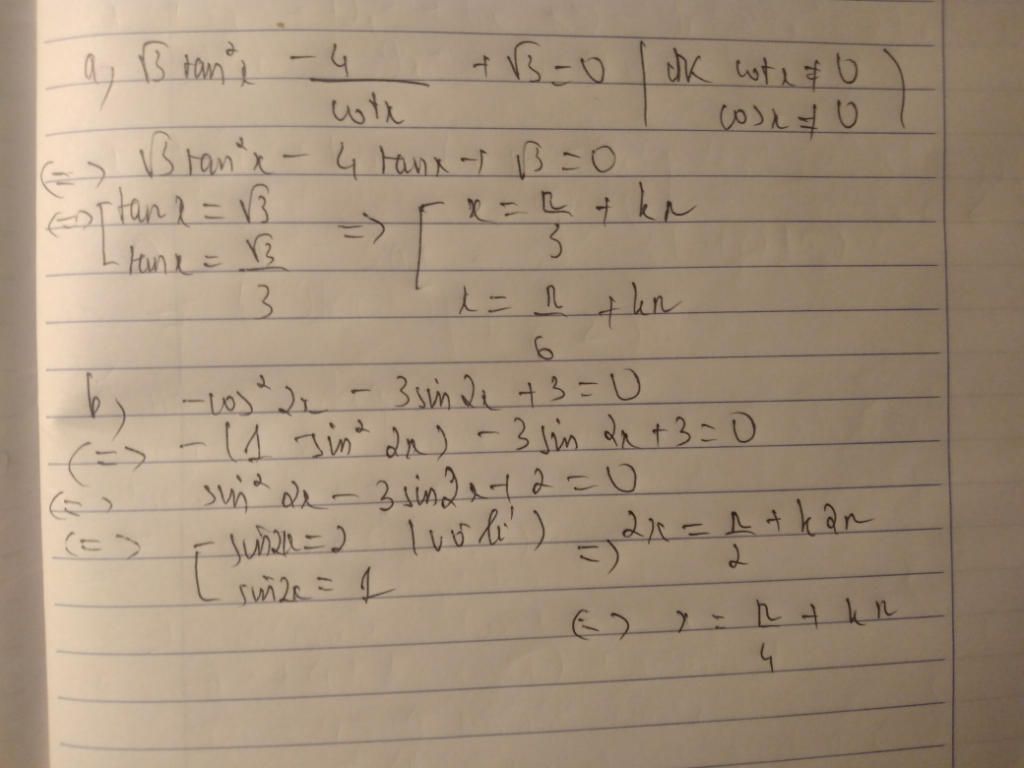 a, √3 tan²x - 4/cotx + √3 = 0 | ĐK cotx ≠ 0
cosx ≠ 0 )
(=> √3 tan²x - 4 tanx + √3 = 0
(=> [ tanx = √3 => [ x = π/3 + kπ
tanx = √3/3
x = π/6 + kπ
b, -cos²2x - 3sin2x + 3 = 0
(=> -(1 - sin² 2x) - 3 sin 2x + 3 = 0
(=> sin² 2x - 3 sin2x + 2 = 0
(=> [ sin2x = 2 (vô lí) => 2x = π/2 + k2π
sin2x = 1
(=> x = π/4 + kπ